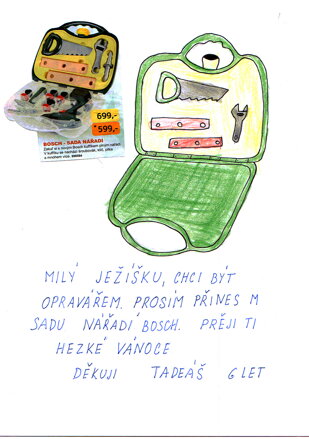 699,-
599,-
BOSCH - SADA NÁŘADÍ
MILÝ JEŽÍŠKU, CHCI BÝT
OPRAVÁŘEM. PROSÍM PŘINES M
SADU NÁŘADÍ BOSCH. PŘEJI TI
HEZKÉ VÁNOCE
DĚKUJI TADEÁŠ 6 LET